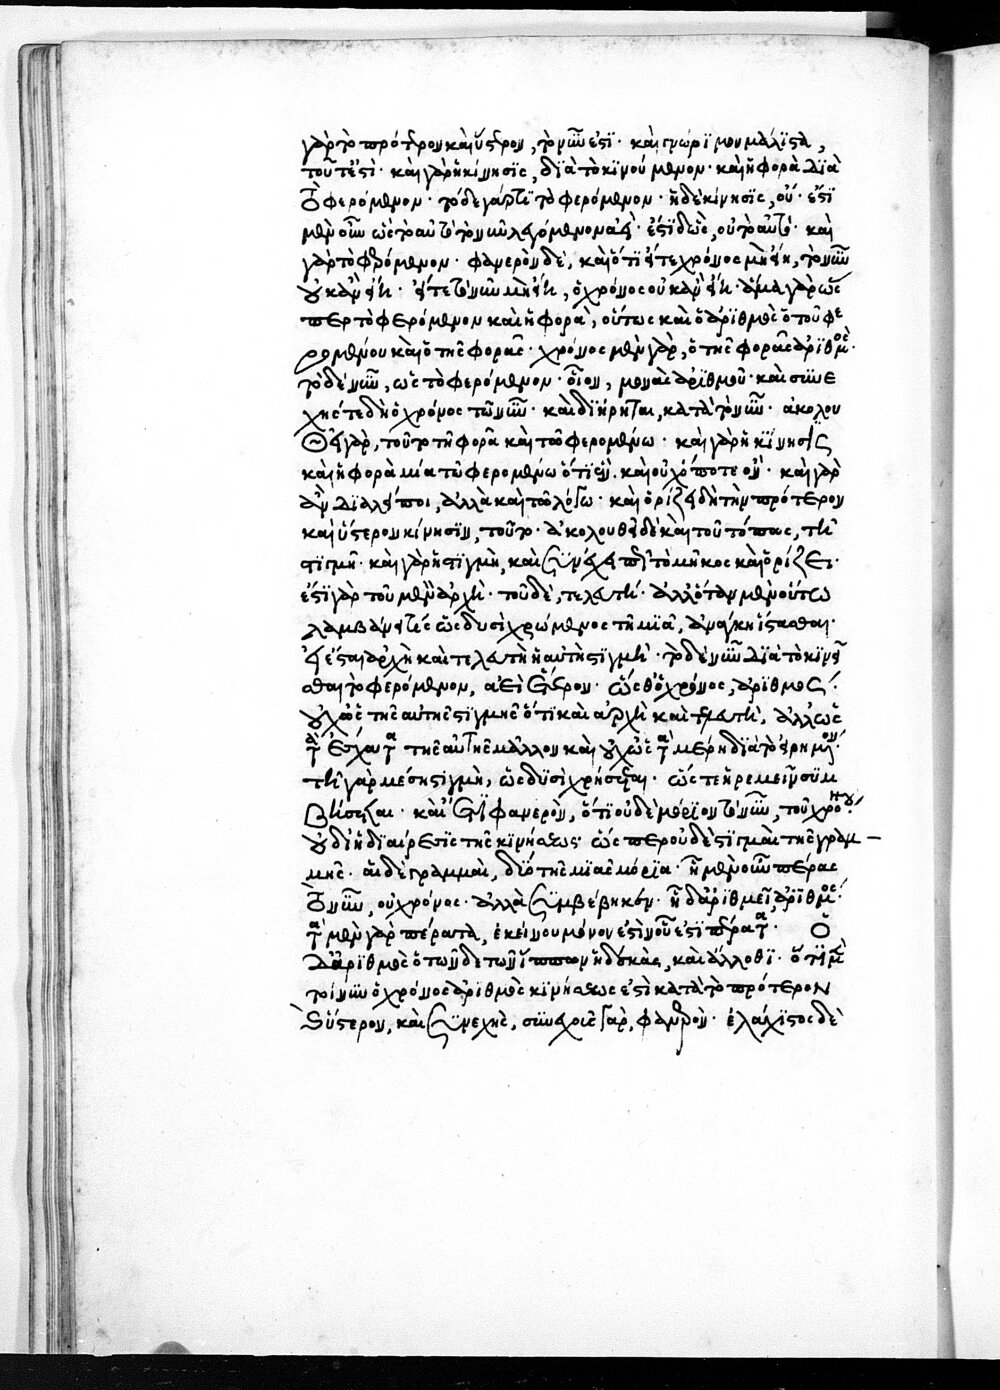 γὰρ τὸ πρότερον καὶ ὕστερον, τὸ νῦν ἐστι· καὶ γνώριμον μάλιστα,
τοῦτ' ἐστί· καὶ γὰρ ἡ κίνησις, διὰ τὸ κινούμενον· καὶ ἡ φορὰ διὰ
τὸ φερόμενον· τόδε γάρ τι τὸ φερόμενον· ἡ δὲ κίνησις, οὔ· ἔστι
μὲν οὖν ὡς τὸ αὐτὸ τὸ νῦν λεγόμενον ἀεί· ἔστι δ' ὡς, οὐ τὸ αὐτό· καὶ
γὰρ τὸ φερόμενον· φανερὸν δὲ, καὶ ὅτι εἴτε χρόνος μὴ εἴη, τὸ νῦν
οὐκ ἂν εἴη· εἴτε τὸ νῦν μὴ εἴη, ὁ χρόνος οὐκ ἂν εἴη· ἅμα γὰρ ὥσ
περ τὸ φερόμενον καὶ ἡ φορὰ, οὕτως καὶ ὁ ἀριθμὸς ὁ τοῦ φε
ρομένου καὶ ὁ τῆς φορᾶς· χρόνος μὲν γὰρ, ὁ τῆς φορᾶς ἀριθμός·
τὸ δὲ νῦν, ὡς τὸ φερόμενον· οἷον, μονὰς ἀριθμοῦ· καὶ συνε
χής τε δὴ ὁ χρόνος τῷ νῦν· καὶ διῄρηται, κατὰ τὸ νῦν· ἀκολου
θεῖ γὰρ, τοῦτο τῇ φορᾷ καὶ τῷ φερομένῳ· καὶ γὰρ ἡ κίνησις
καὶ ἡ φορὰ μία τῷ φερομένῳ ὅτι ἕν. καὶ οὐχ ὅ ποτε ὄν· καὶ γὰρ
ἂν διαλείποι, ἀλλὰ καὶ τῷ λόγῳ· καὶ ὁρίζει δὴ τὴν πρότερον
καὶ ὕστερον κίνησιν, τοῦτο· ἀκολουθεῖ δὲ καὶ τοῦτό πως, τῇ
στιγμῇ· καὶ γὰρ ἡ στιγμὴ, καὶ συνέχει τὸ μῆκος καὶ ὁρίζει·
ἔστι γὰρ τοῦ μὲν ἀρχὴ· τοῦ δὲ, τελευτή· ἀλλ' ὅταν μὲν οὕτω
λαμβάνῃ τις ὡς δυσὶ χρώμενος τῇ μιᾷ, ἀνάγκη ἵστασθαι·
εἰ ἔσται ἀρχὴ καὶ τελευτὴ ἡ αὐτὴ στιγμή· τὸ δὲ νῦν διὰ τὸ κινεῖ
σθαι τὸ φερόμενον, ἀεὶ ἕτερον· ὥσθ' ὁ χρόνος, ἀριθμός·
οὐχ ὡς τῆς αὐτῆς στιγμῆς ὅτι καὶ ἀρχὴ καὶ τελευτή, ἀλλ' ὡς
τὰ ἔσχατα τῆς αὐτῆς μᾶλλον καὶ οὐχ ὡς τὰ μέρη διὰ τὸ εἰρημένον·
τῇ γὰρ μέσῃ στιγμῇ, ὡς δυσὶ χρήσεται· ὥστε ἠρεμεῖν συμ
βήσεται· καὶ ἔτι φανερὸν, ὅτι οὐδὲ μόριον τὸ νῦν, τοῦ χρόνου·
οὐδ' ἡ διαίρεσις τῆς κινήσεως· ὥσπερ οὐδὲ στιγμαὶ τῆς γραμ
μῆς· αἱ δὲ γραμμαὶ, δύο τῆς μιᾶς μόρια· ᾗ μὲν οὖν πέρας
τὸ νῦν, οὐ χρόνος· ἀλλὰ συμβέβηκεν· ᾗ δ' ἀριθμεῖ, ἀριθμός·
τὰ μὲν γὰρ πέρατα, ἐκείνου μόνον ἐστὶν οὗ ἐστι πέρατα· ὁ
δ' ἀριθμὸς ὁ τῶνδε τῶν ἵππων ἡ δεκὰς, καὶ ἄλλοθι· ὅτι μὲν
τοίνυν ὁ χρόνος ἀριθμὸς κινήσεώς ἐστι κατὰ τὸ πρότερον
καὶ ὕστερον, καὶ συνεχὴς, συνεχοῦς γὰρ, φανερὸν· ἐλάχιστος δὲ